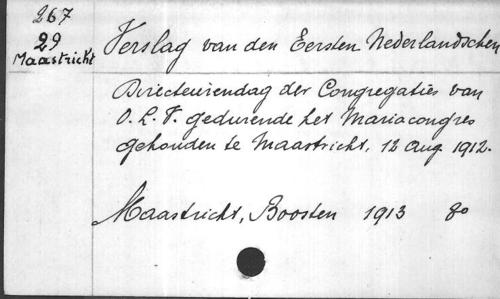 267
29
Maastricht
Verslag van den Eersten Nederlandschen
Directeurendag der Congregaties van
O. L. V. gedurende het Mariacongres
gehouden te Maastricht, 12 Aug. 1912.
Maastricht, Boosten 1913 8o